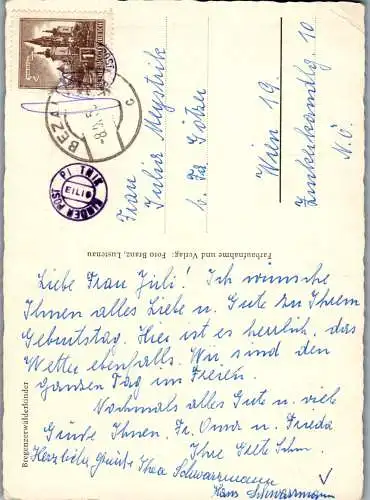 Frau
Julia Meystrik
b. Fa. Götzer
Wien 19.
10
N.Ö.
BEZAU
Farbaufnahme und Verlag: Foto Branz, Lustenau
Bregenzerwälderkinder
Liebe Frau Juli! Ich wünsche
Ihnen alles Liebe u. Gute zu Ihrem
Geburtstag. Hier ist es herrlich, das
Wetter ebenfalls. Wir sind den
ganzen Tag im Freien.
Nochmals alles Gute u. viele
Grüße Ihnen, Fr. Oma u. Frieda
Ihre Grete Schm.
Herzliche Grüße Thea Schwarzmann
Hans Schwarzmann